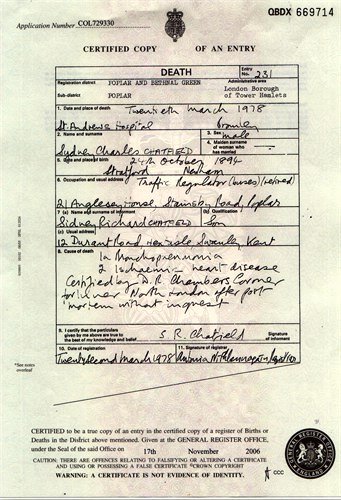 QBDX 669714
Application Number COL729330
CERTIFIED COPY OF AN ENTRY
DEATH
Entry No. 231
Registration district POPLAR AND BETHNAL GREEN
Administrative area
Sub-district POPLAR
London Borough of Tower Hamlets
1. Date and place of death
Twentieth March 1978
St. Andrews Hospital Bromley
2. Name and surname
Sydney Charles CHATFIELD
3. Sex male
4. Maiden surname of woman who has married
5. Date and place of birth
24th October 1894
Stratford Newham
6. Occupation and usual address
Traffic Regulator (buses) (retired)
21 Anglesey House, Stainsby Road, Poplar
7 (a) Name and surname of informant
(b) Qualification
Sidney Richard CHATFIELD Son
(c) Usual address
12 Durant Road, Hextable Swanley Kent
8. Cause of death
1a Bronchopneumonia
2 Ischaemic heart disease
Certified by D.R. Chambers Coroner
for Inner North London after post
mortem without inquest
9. I certify that the particulars given by me above are true to the best of my knowledge and belief
S. R. Chatfield
Signature of informant
10. Date of registration
Twenty second March 1978
11. Signature of registrar
*See notes overleaf
CERTIFIED to be a true copy of an entry in the certified copy of a register of Births or
Deaths in the District above mentioned. Given at the GENERAL REGISTER OFFICE,
under the Seal of the said Office on 17th November 2006
CAUTION: THERE ARE OFFENCES RELATING TO FALSIFYING OR ALTERING A CERTIFICATE
AND USING OR POSSESSING A FALSE CERTIFICATE ©CROWN COPYRIGHT
WARNING: A CERTIFICATE IS NOT EVIDENCE OF IDENTITY.
CCC
GENERAL REGISTER OFFICE
ENGLAND